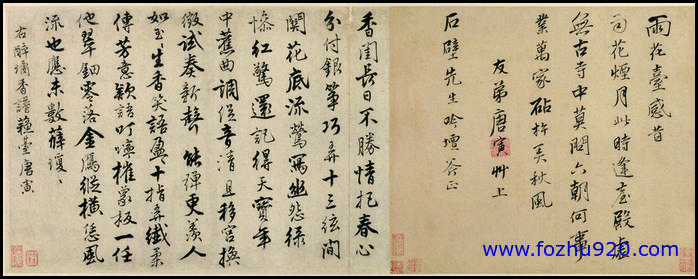 雨花臺感昔
司花煙月此時逢臺殿虛
無古寺中莫問六朝何事
業萬家砧杵美秋風
友弟唐寅艸上
石壁先生吟壇答正
香閨長日不勝情把春心
分付銀箏巧弄十三弦間
關花底流鶯寫幽愁綠
慘紅驚還記得天寶年
中舊曲調促音清且移宮換
徵試奏新聲能彈更美人
如玉生香笑語盈十指弄纖柔
傳芳意款語叮嚀摧象板一任
他翠鈿零落金雁縱橫恁風
流也應未數薛瓊瓊
右醉瑤香譜蘇臺唐寅
www.fozhu920.com